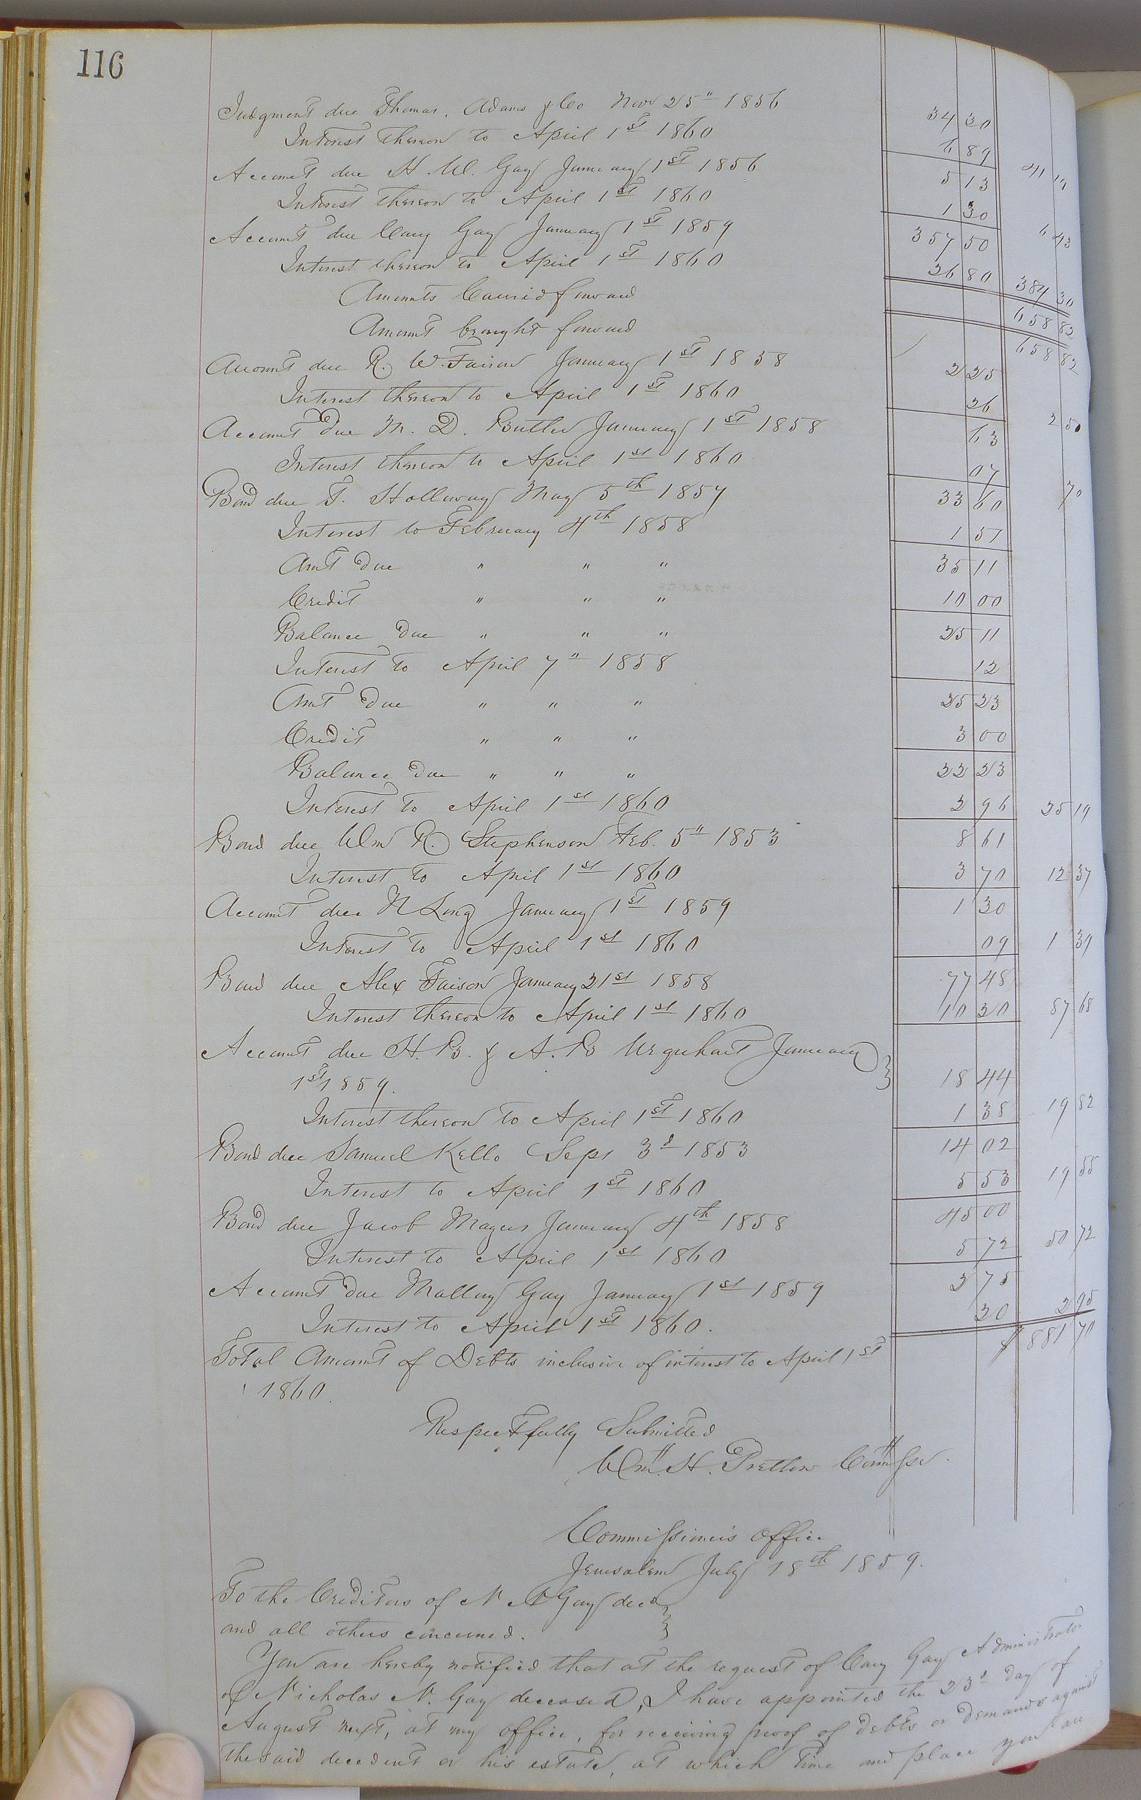 116
Judgment due Thomas. Adams & Co Nov 25" 1856 34 20
Interest thereon to April 1st 1860 6 89 41 19
Account due H. W. Gay January 1st 1856 5 13
Interest thereon to April 1st 1860 1 30 6 43
Account due Cary Gay January 1st 1859 357 50
Interest thereon to April 1st 1860 26 80 384 30
Amounts Carried forward 658 82
Amount brought forward 658 82
Account due R. W. Faison January 1st 1858 2 25
Interest thereon to April 1st 1860 26 2 50
Account Due M. D. Butler January 1st 1858 63
Interest thereon to April 1st 1860 07 70
Bond due T. Holloway May 5th 1857 33 60
Interest to February 4th 1858 1 51
Amt Due " " " 35 11
Credit " " " 10 00
Balance Due " " " 25 11
Interest to April 7" 1858 12
Amt Due " " " 25 23
Credit " " " 3 00
Balance Due " " " 22 23
Interest to April 1st 1860 2 96 25 19
Bond due Wm R. Stephenson Feb. 5" 1853 8 61
Interest to April 1st 1860 3 70 12 37
Account due N Long January 1st 1859 1 30
Interest to April 1st 1860 09 1 39
Bond due Alex Faison January 21st 1858 77 48
Interest thereon to April 1st 1860 10 20 87 68
Account due H. B. & A. B Urquhart January }
1st 1859. 18 44
Interest thereon to April 1st 1860 1 38 19 82
Bond due Samuel Kello Sept 3d 1853 14 02
Interest to April 1st 1860 5 53 19 55
Bond due Jacob Magee January 4th 1858 45 00
Interest to April 1st 1860 5 72 50 72
Account Due Mallory Gay January 1st 1859 2 75
Interest to April 1st 1860. 20 2 95
Total Amount of Debts inclusive of interest to April 1st $881 70
1860.
Respectfully Submitted
Wm. H. Pretlow Commissr.
Commissioner's Office
Jerusalem July 18th 1859.
To the Creditors of N N Gay decd }
and all others concerned.
You are hereby notified that at the request of Cary Gay Administrator
of Nicholas N. Gay deceased, I have appointed the 23d day of
August next, at my office, for receiving proof of debts or Demands against
the said decedent or his estate, at which time and place you are